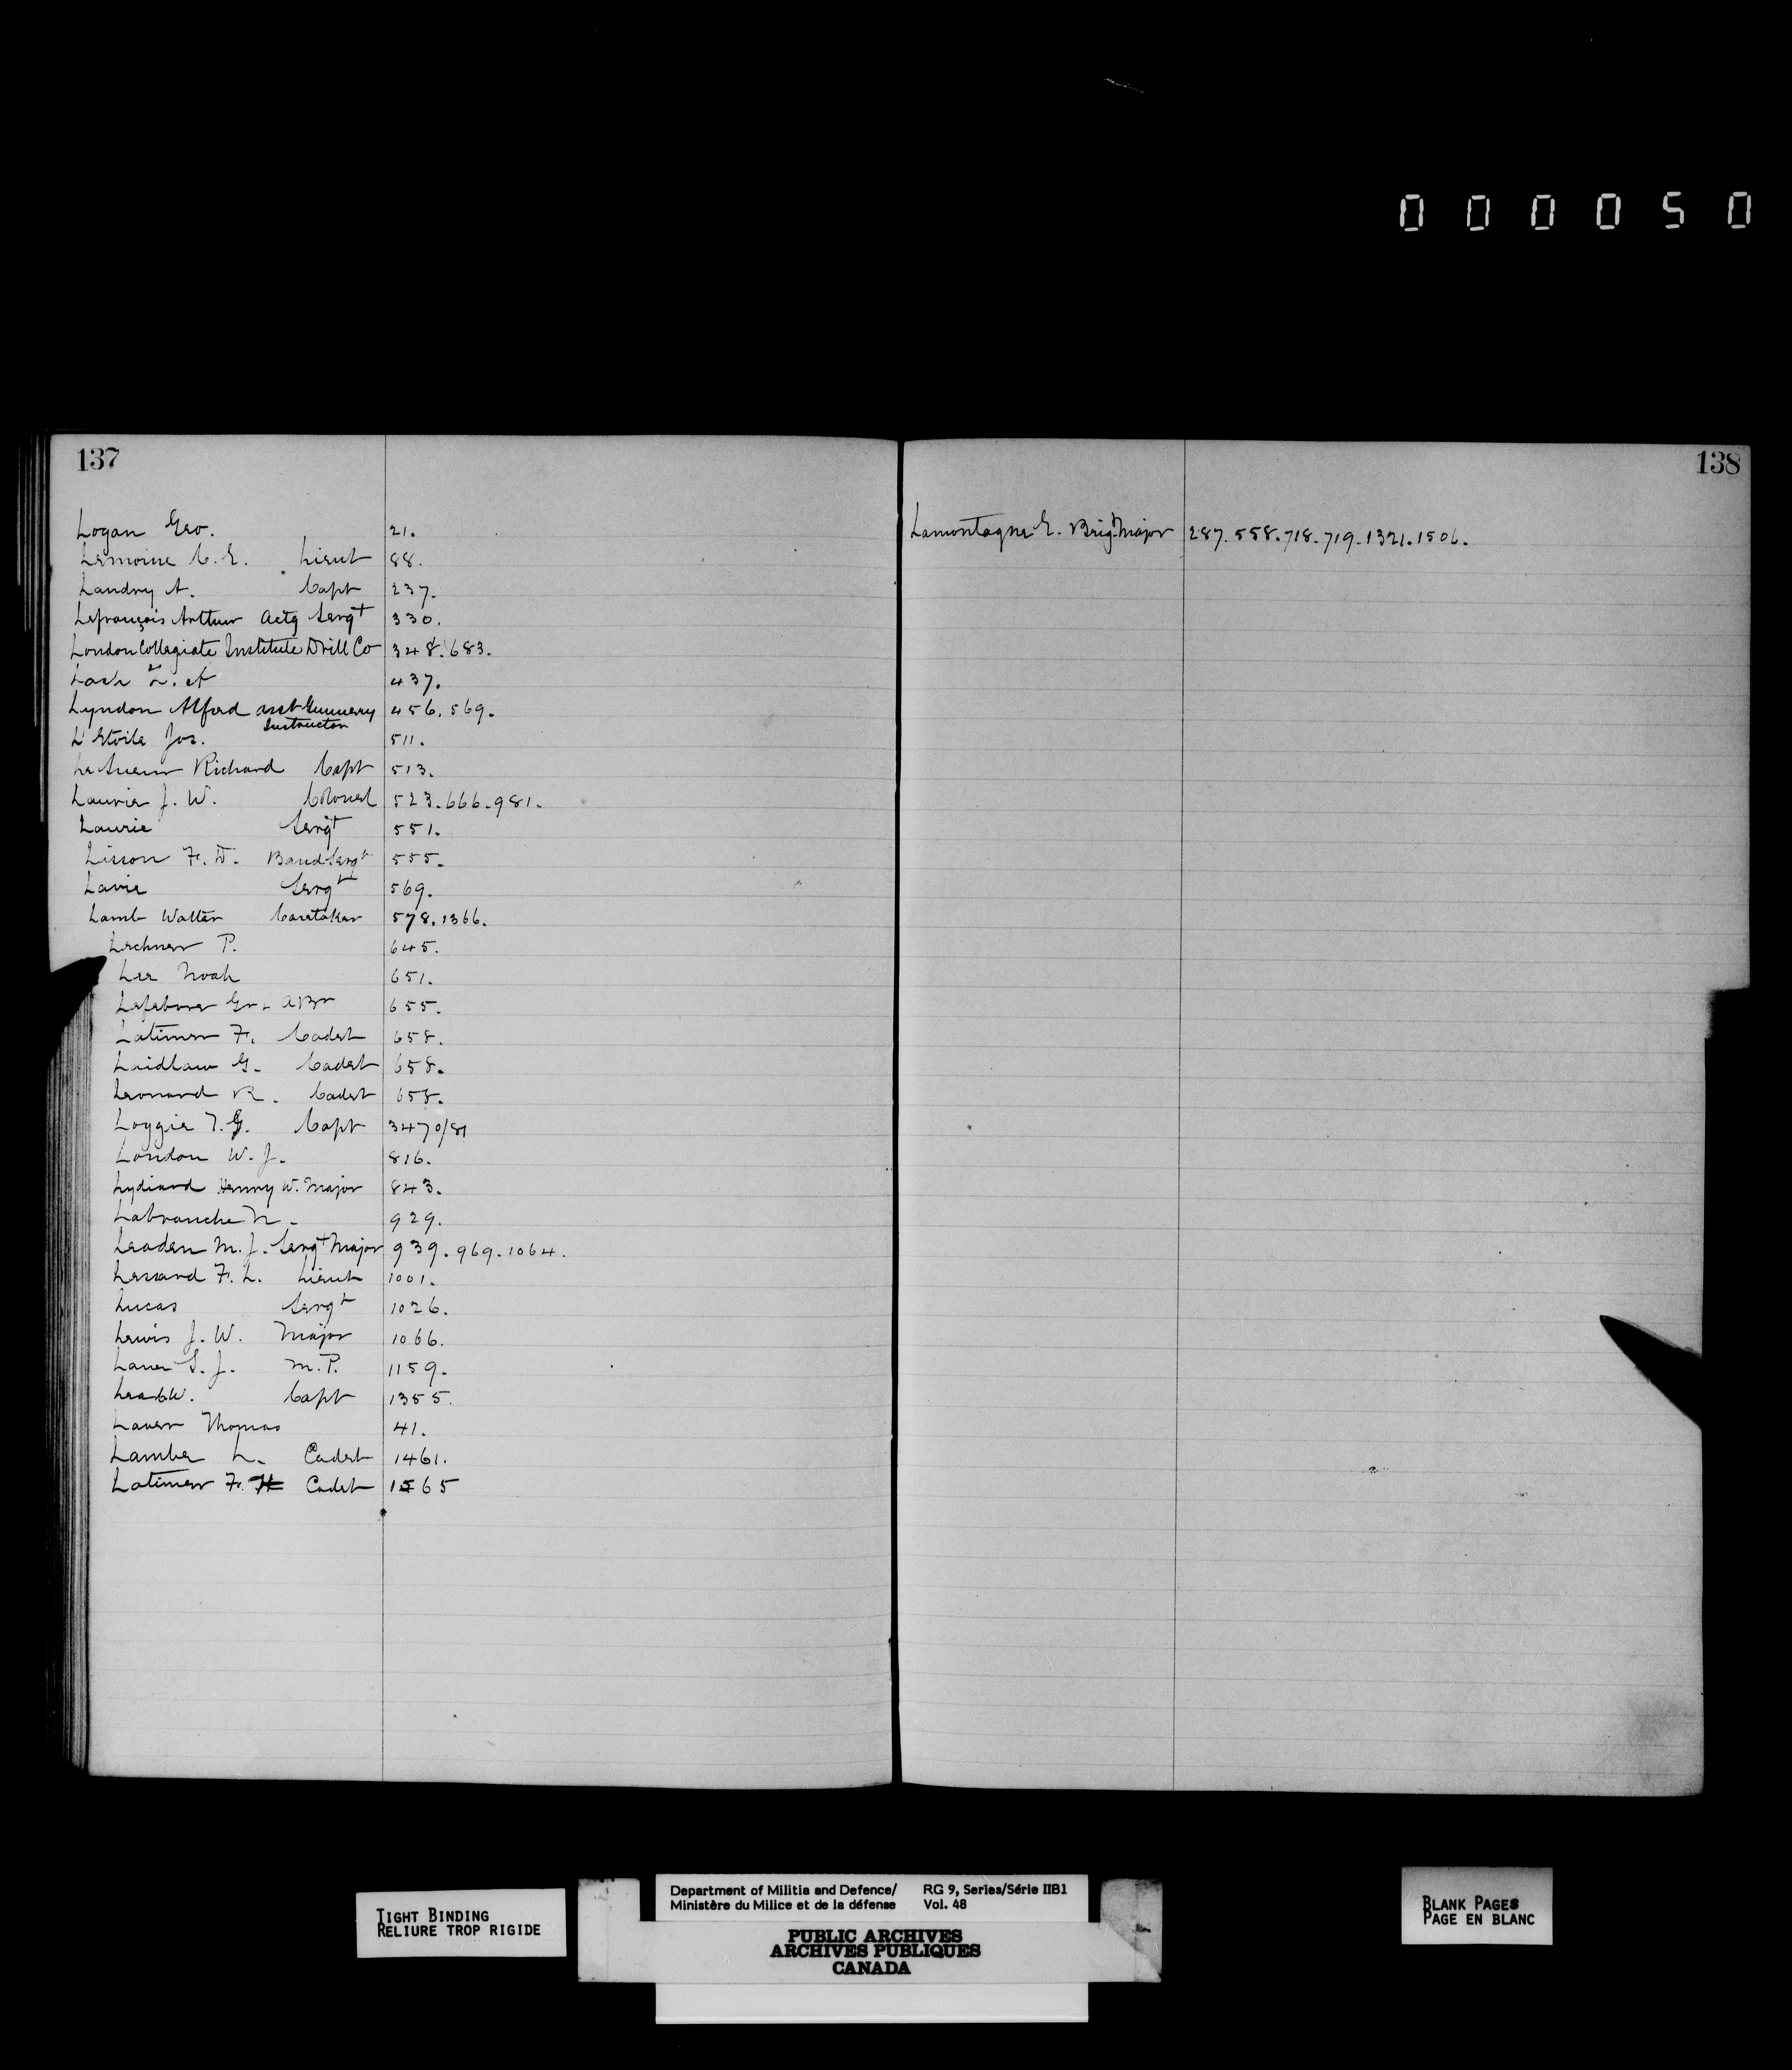 000050
137
Logan Geo. 21.
Lemoine C. E. Lieut 88.
Landry A. Capt 237.
Lefrançois Arthur Actg Sergt 330.
London Collegiate Institute Drill Co 348. 683.
Lash Z. A 437.
Lyndon Alfred asst Gunnery 456. 569.
Instructor
L'Etoile Jos. 511.
Le Sueur Richard Capt 513.
Laurie J. W. Colonel 523. 666. 981.
Laurie Sergt 551.
Lisson F. W. Band Sergt 555.
Lavie Sergt 569.
Lamb Walter Caretaker 578. 1366.
Lechner P. 645.
Lee Noah 651.
Lefebvre Gr. 655.
Latimer F. Cadet 658.
Laidlaw G. Cadet 658.
Leonard R. Cadet 658.
Loggie T. G. Capt 3470/81
London W. J. 816.
Lydiard Henry W. Major 843.
Labranche N. 929.
Leaden M. J. Sergt Major 939. 969. 1064.
Lessard F. L. Lieut 1001.
Lucas Sergt 1026.
Lewis J. W. Major 1066.
Lane S. J. M. P. 1159.
W. Capt 1355.
Laver Thomas 41.
Lambe L. Cadet 1461.
Latimer F. H Cadet 1565
138
Lamontagne E. Brig. Major 287. 558. 718. 719. 1321. 1506.
TIGHT BINDING
RELIURE TROP RIGIDE
Department of Militia and Defence/ RG 9, Series/Série IIB1
Ministère du Milice et de la défense Vol. 48
PUBLIC ARCHIVES
ARCHIVES PUBLIQUES
CANADA
BLANK PAGES
PAGE EN BLANC